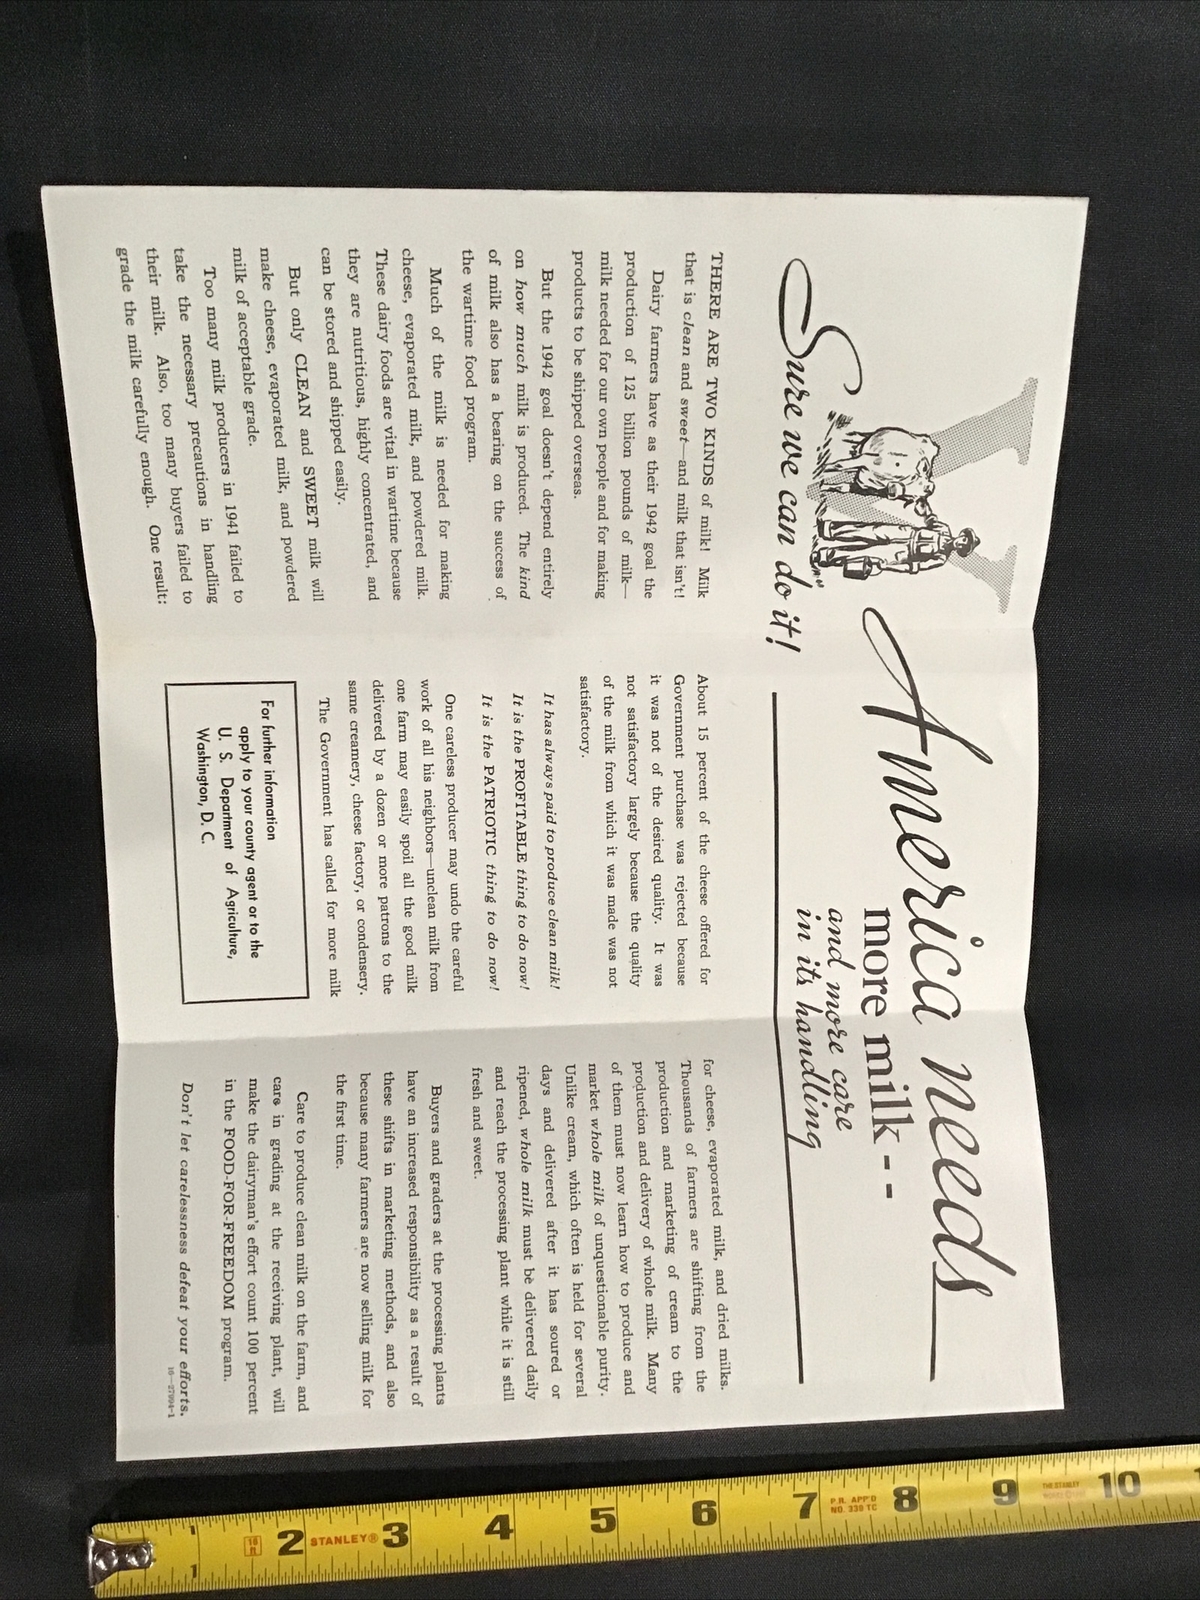 America needs
more milk - -
and more care
in its handling
Sure we can do it!
THERE ARE TWO KINDS of milk! Milk
that is clean and sweet—and milk that isn't!
Dairy farmers have as their 1942 goal the
production of 125 billion pounds of milk—
milk needed for our own people and for making
products to be shipped overseas.
But the 1942 goal doesn't depend entirely
on how much milk is produced. The kind
of milk also has a bearing on the success of
the wartime food program.
Much of the milk is needed for making
cheese, evaporated milk, and powdered milk.
These dairy foods are vital in wartime because
they are nutritious, highly concentrated, and
can be stored and shipped easily.
But only CLEAN and SWEET milk will
make cheese, evaporated milk, and powdered
milk of acceptable grade.
Too many milk producers in 1941 failed to
take the necessary precautions in handling
their milk. Also, too many buyers failed to
grade the milk carefully enough. One result:
About 15 percent of the cheese offered for
Government purchase was rejected because
it was not of the desired quality. It was
not satisfactory largely because the quality
of the milk from which it was made was not
satisfactory.
It has always paid to produce clean milk!
It is the PROFITABLE thing to do now!
It is the PATRIOTIC thing to do now!
One careless producer may undo the careful
work of all his neighbors—unclean milk from
one farm may easily spoil all the good milk
delivered by a dozen or more patrons to the
same creamery, cheese factory, or condensery.
The Government has called for more milk
For further information
apply to your county agent or to the
U. S. Department of Agriculture,
Washington, D. C.
for cheese, evaporated milk, and dried milks.
Thousands of farmers are shifting from the
production and marketing of cream to the
production and delivery of whole milk. Many
of them must now learn how to produce and
market whole milk of unquestionable purity.
Unlike cream, which often is held for several
days and delivered after it has soured or
ripened, whole milk must be delivered daily
and reach the processing plant while it is still
fresh and sweet.
Buyers and graders at the processing plants
have an increased responsibility as a result of
these shifts in marketing methods, and also
because many farmers are now selling milk for
the first time.
Care to produce clean milk on the farm, and
care in grading at the receiving plant, will
make the dairyman's effort count 100 percent
in the FOOD-FOR-FREEDOM program.
Don't let carelessness defeat your efforts.
16—27994-1
1 2 STANLEY® 3 4 5 6 7 P.R. APP'D NO. 330 TC 8 9 THE STANLEY 10